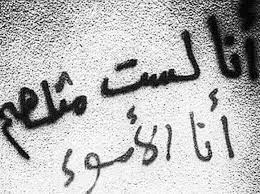 أنا لست مثلهم
أنا الأسوء